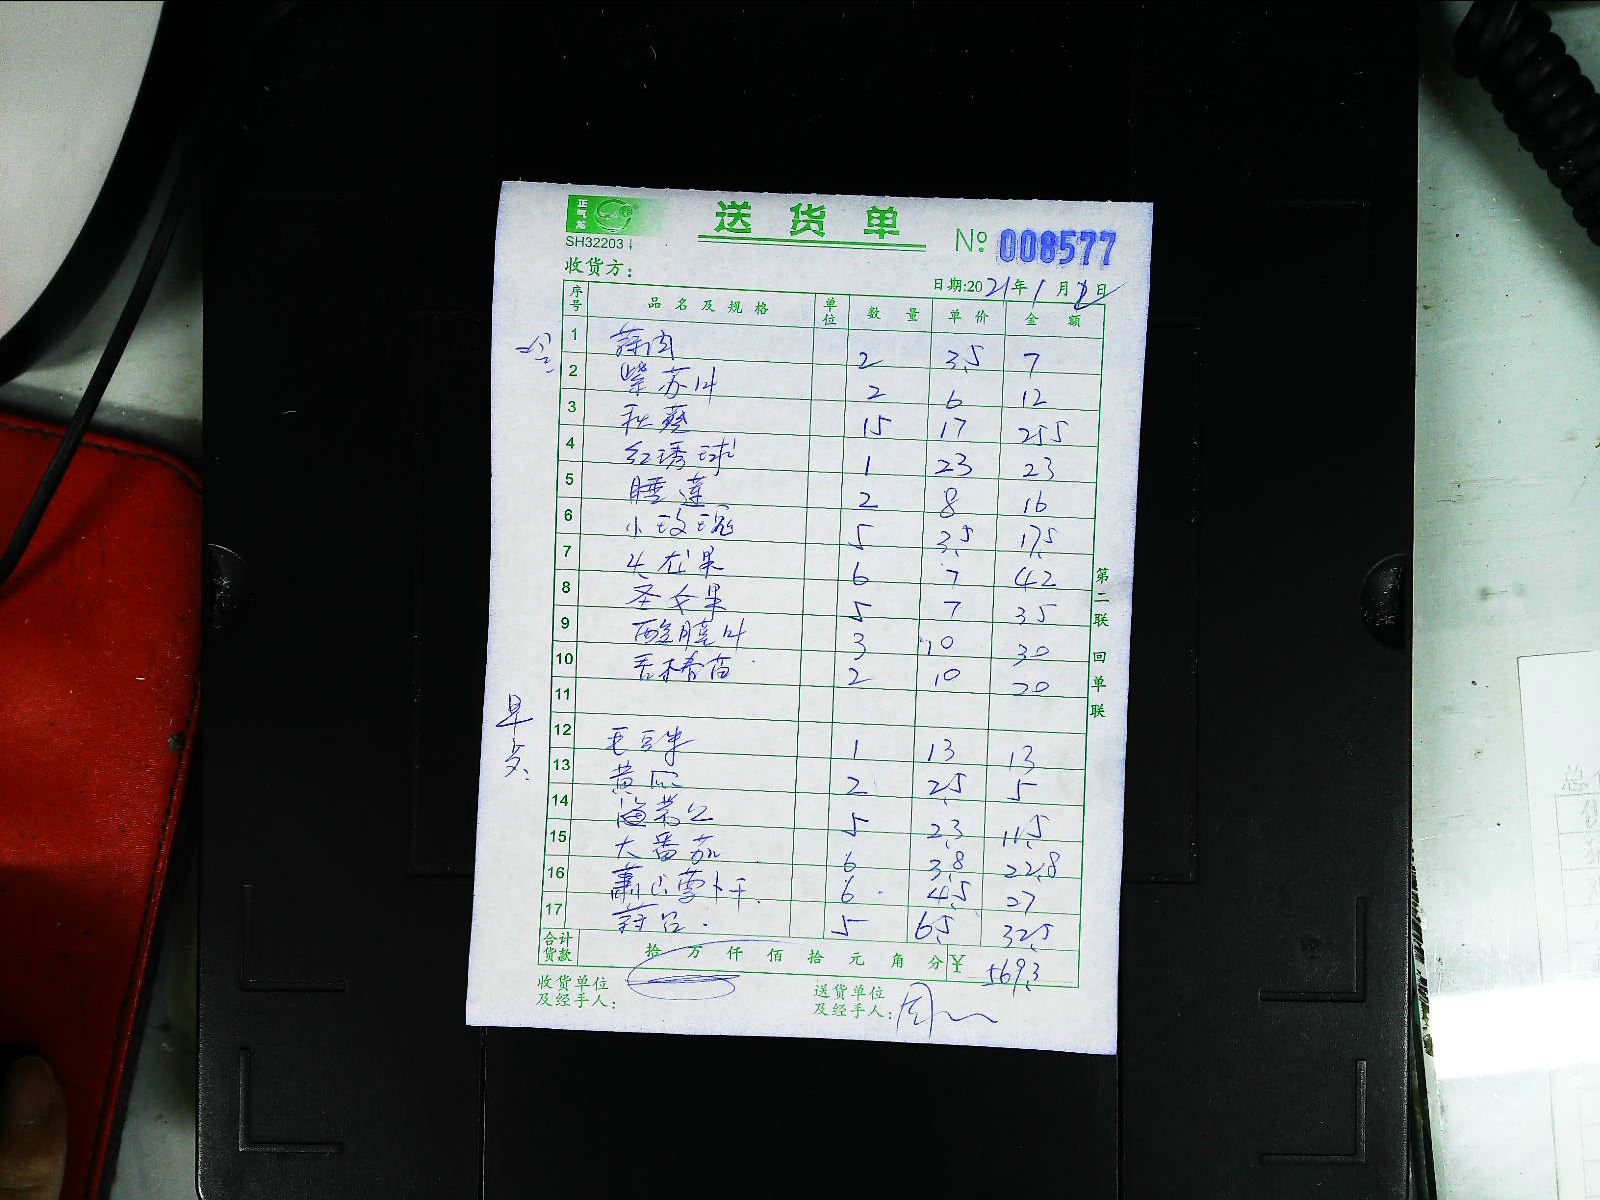 正气龙
送货单
SH32203
No 008577
收货方:
日期:2021年1月 日
序号 品名及规格 单位 数量 单价 金额
1 蒜肉 2 3.5 7
2 紫苏叶 2 6 12
3 秋葵 15 17 255
4 红绣球 1 23 23
5 睡莲 2 8 16
6 小玫瑰 5 3.5 17.5
7 火龙果 6 7 42
8 圣女果 5 7 35
9 酸膜叶 3 10 30
10 香椿苗 2 10 20
11
早点:
12 毛豆米 1 13 13
13 黄瓜 2 2.5 5
14 5 2.3 11.5
15 大番茄 6 3.8 22.8
16 萧山萝卜干 6 4.5 27
17 5 6.5 32.5
合计货款 拾 万 仟 佰 拾 元 角 分 ¥ 569.3
收货单位及经手人:
送货单位及经手人:
第二联 回单联